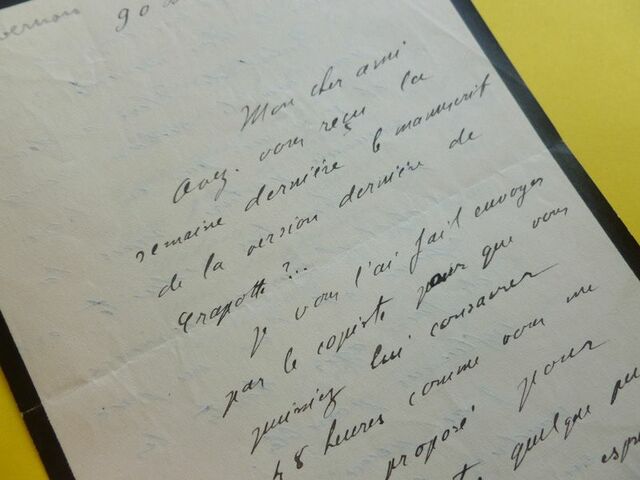 Vernon 9 o
Mon cher ami
Avez-vous reçu la
semaine dernière le manuscrit
de la version dernière de
Crapotte ?..
Je vous l'ai fait envoyer
par le copiste pour que vous
puissiez lui consacrer
48 heures comme vous me
proposé pour
quelque peu